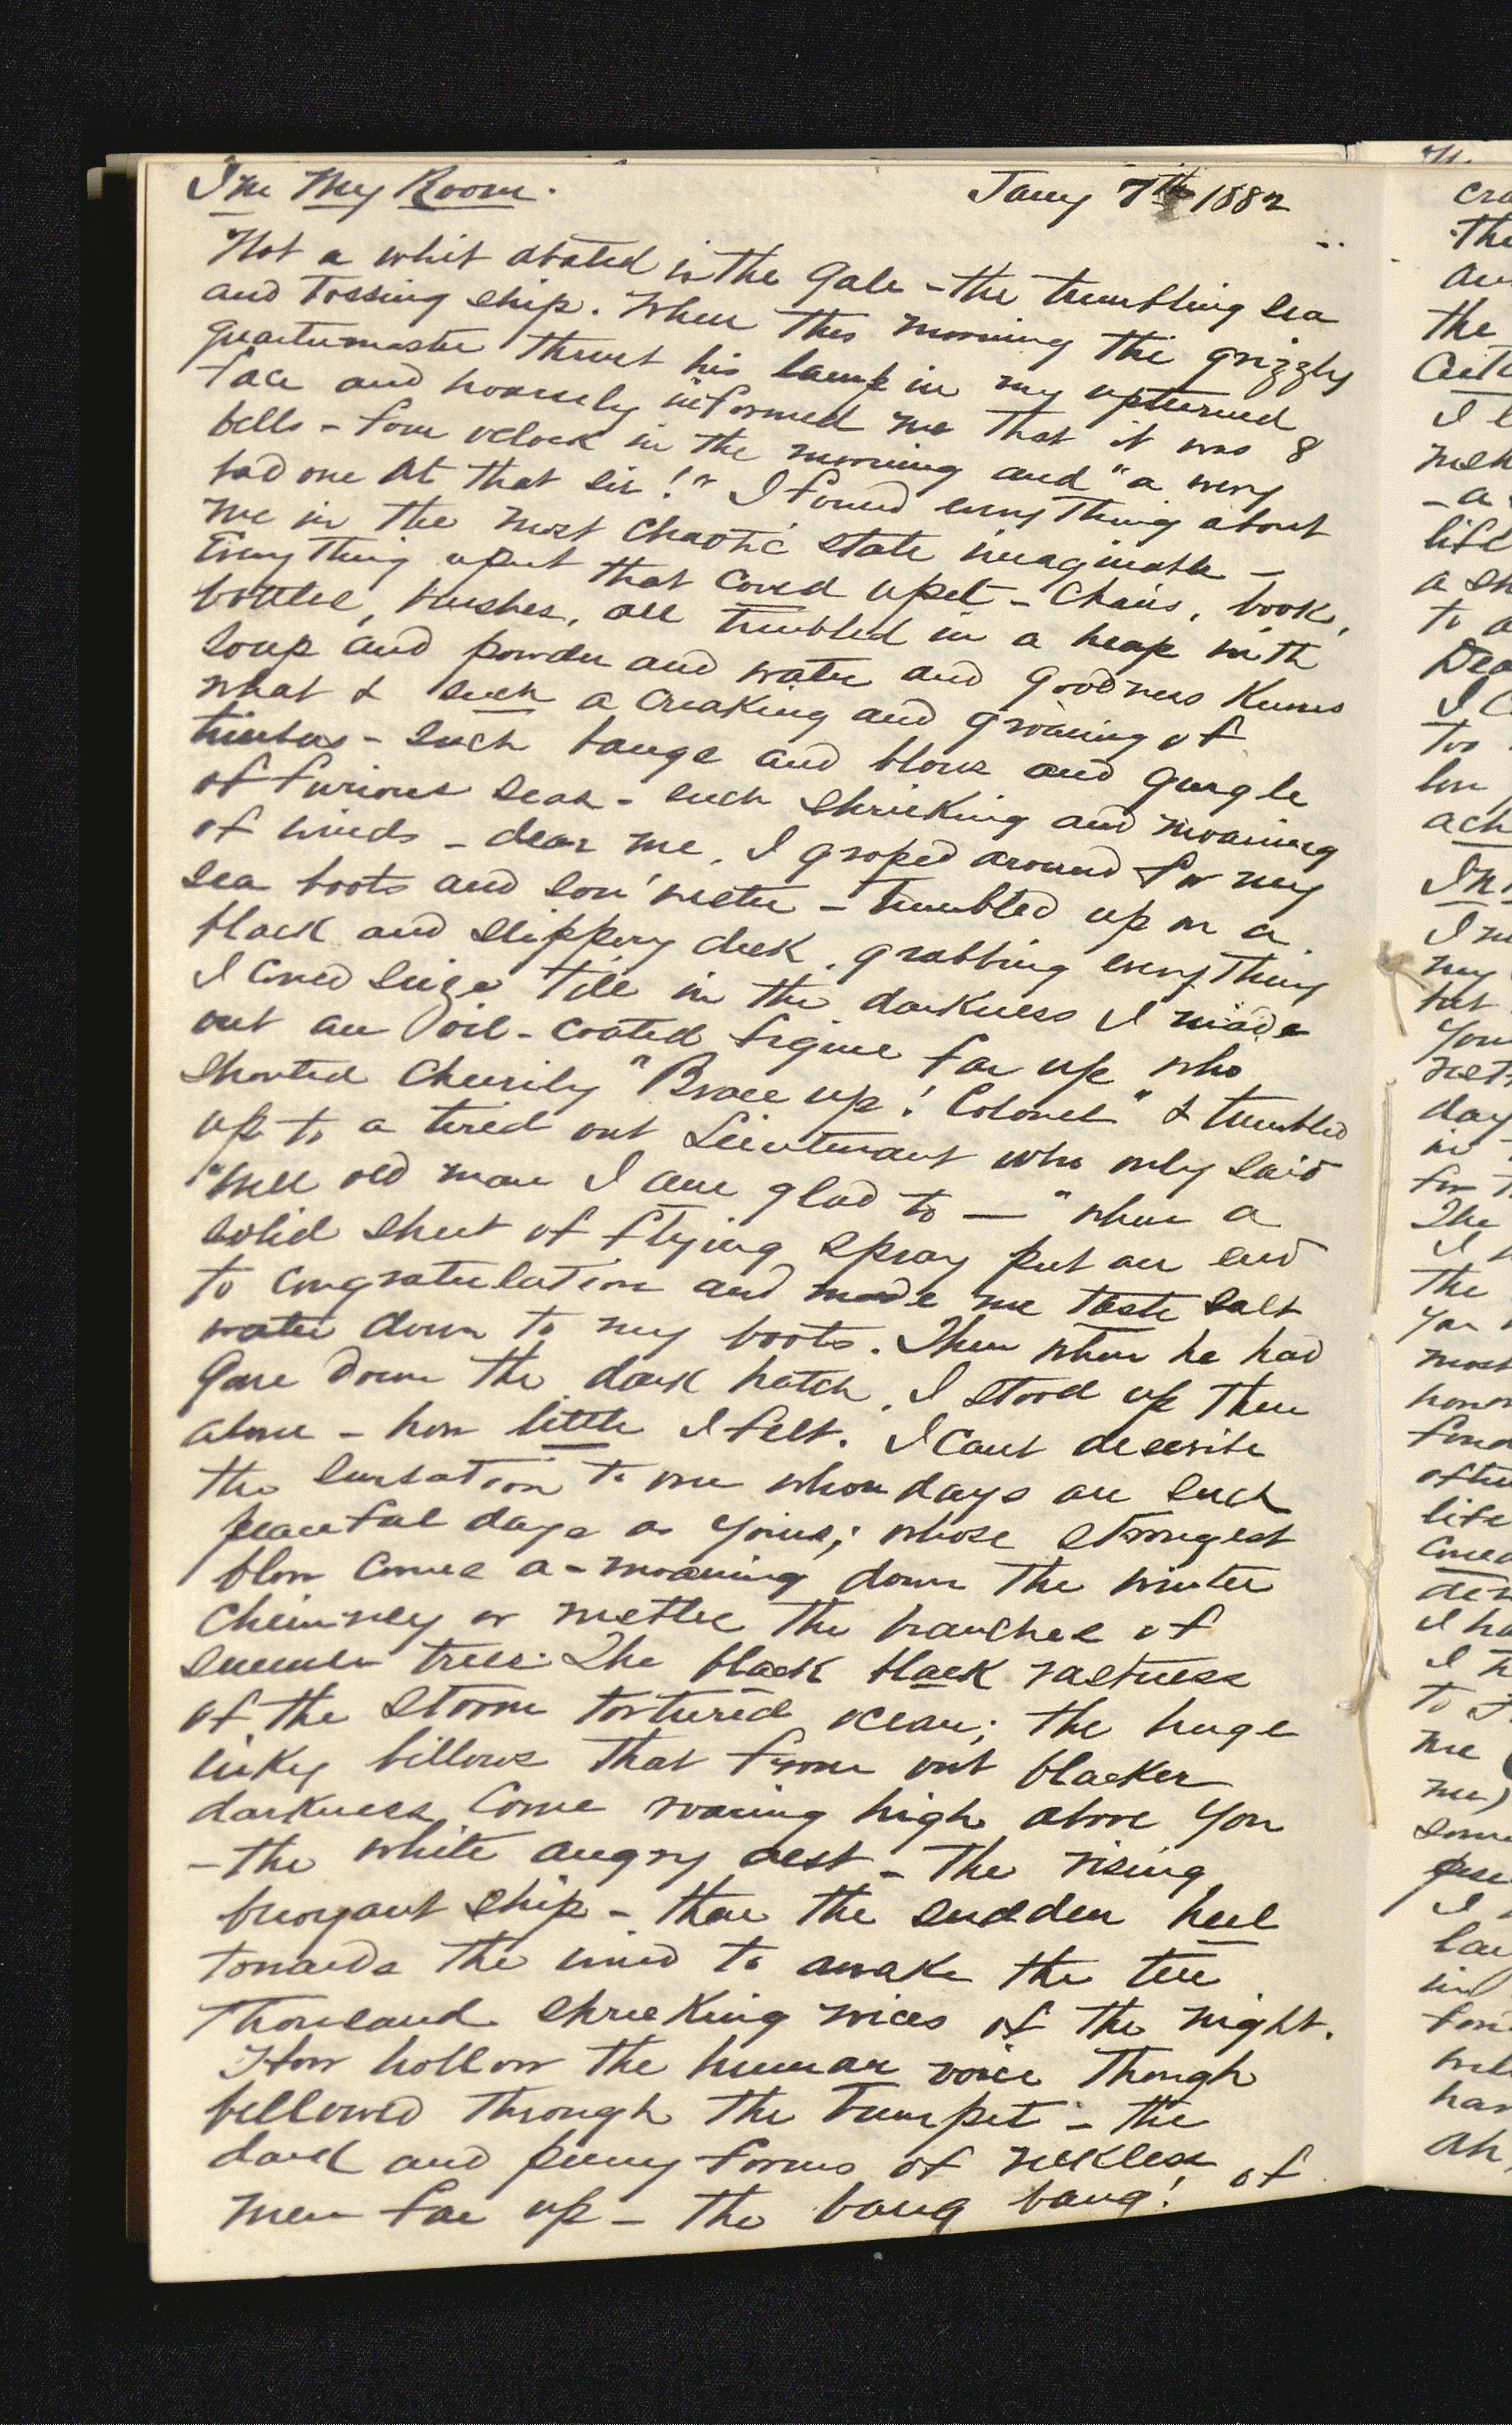 In My Room. Jany 7th 1882
Not a whit abated is the gale - the tumbling sea
and tossing ship. When this morning the grizzly
quartermaster thrust his lamp in my upturned
face and hoarsely informed me that it was 8
bells - four oclock in the morning and "a very
bad one at that sir!" I found everything about
me in the most chaotic state imaginable -
Everything upset that could upset - chairs, books,
bottles, brushes, all tumbled in a heap with
soap and powder and water and goodness knows
what & such a creaking and groaning of
timbers - such bangs and blows and gurgle
of furious seas - such shrieking and moaning
of winds - dear me, I groped around for my
sea boots and sou'wester - tumbled up on a
black and slippery deck, grabbing everything
I could seize till in the darkness I made
out an oil-coated figure far up who
shouted cheerily "Brace up! Colonel" & tumbled
up to a tired out Lieutenant who only said
"Well old man I am glad to — " when a
solid sheet of flying spray put an end
to congratulation and made me taste salt
water down to my boots. Then when he had
gone down the dark hatch, I stood up there
alone - how little I felt. I cant describe
the sensation to one whose days are such
peaceful days as yours; whose strongest
blow comes a-moaning down the winter
chimney or rustles the branches of
summer trees. The black black vastness
of the storm tortured ocean; the huge
inky billows that from out blacker
darkness come roaring high above you
- the white angry crest - the rising
buoyant ship - then the sudden heel
towards the wind to awake the ten
thousand shrieking voices of the night.
How hollow the human voice though
bellowed through the trumpet - the
dark and puny forms of reckless
men far up - the bang bang! of